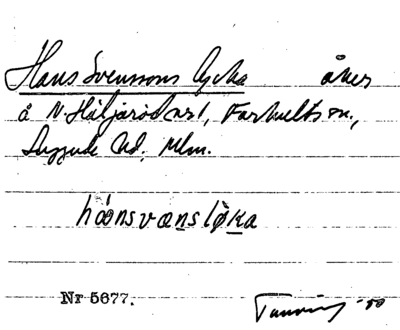 Hans Svenssons lycka åker
å N. Häljaröd nr 1, Farhults sn.,
Luggude hd, Mlm.
håo̵nsvænsly̵ka
Nr 5677.